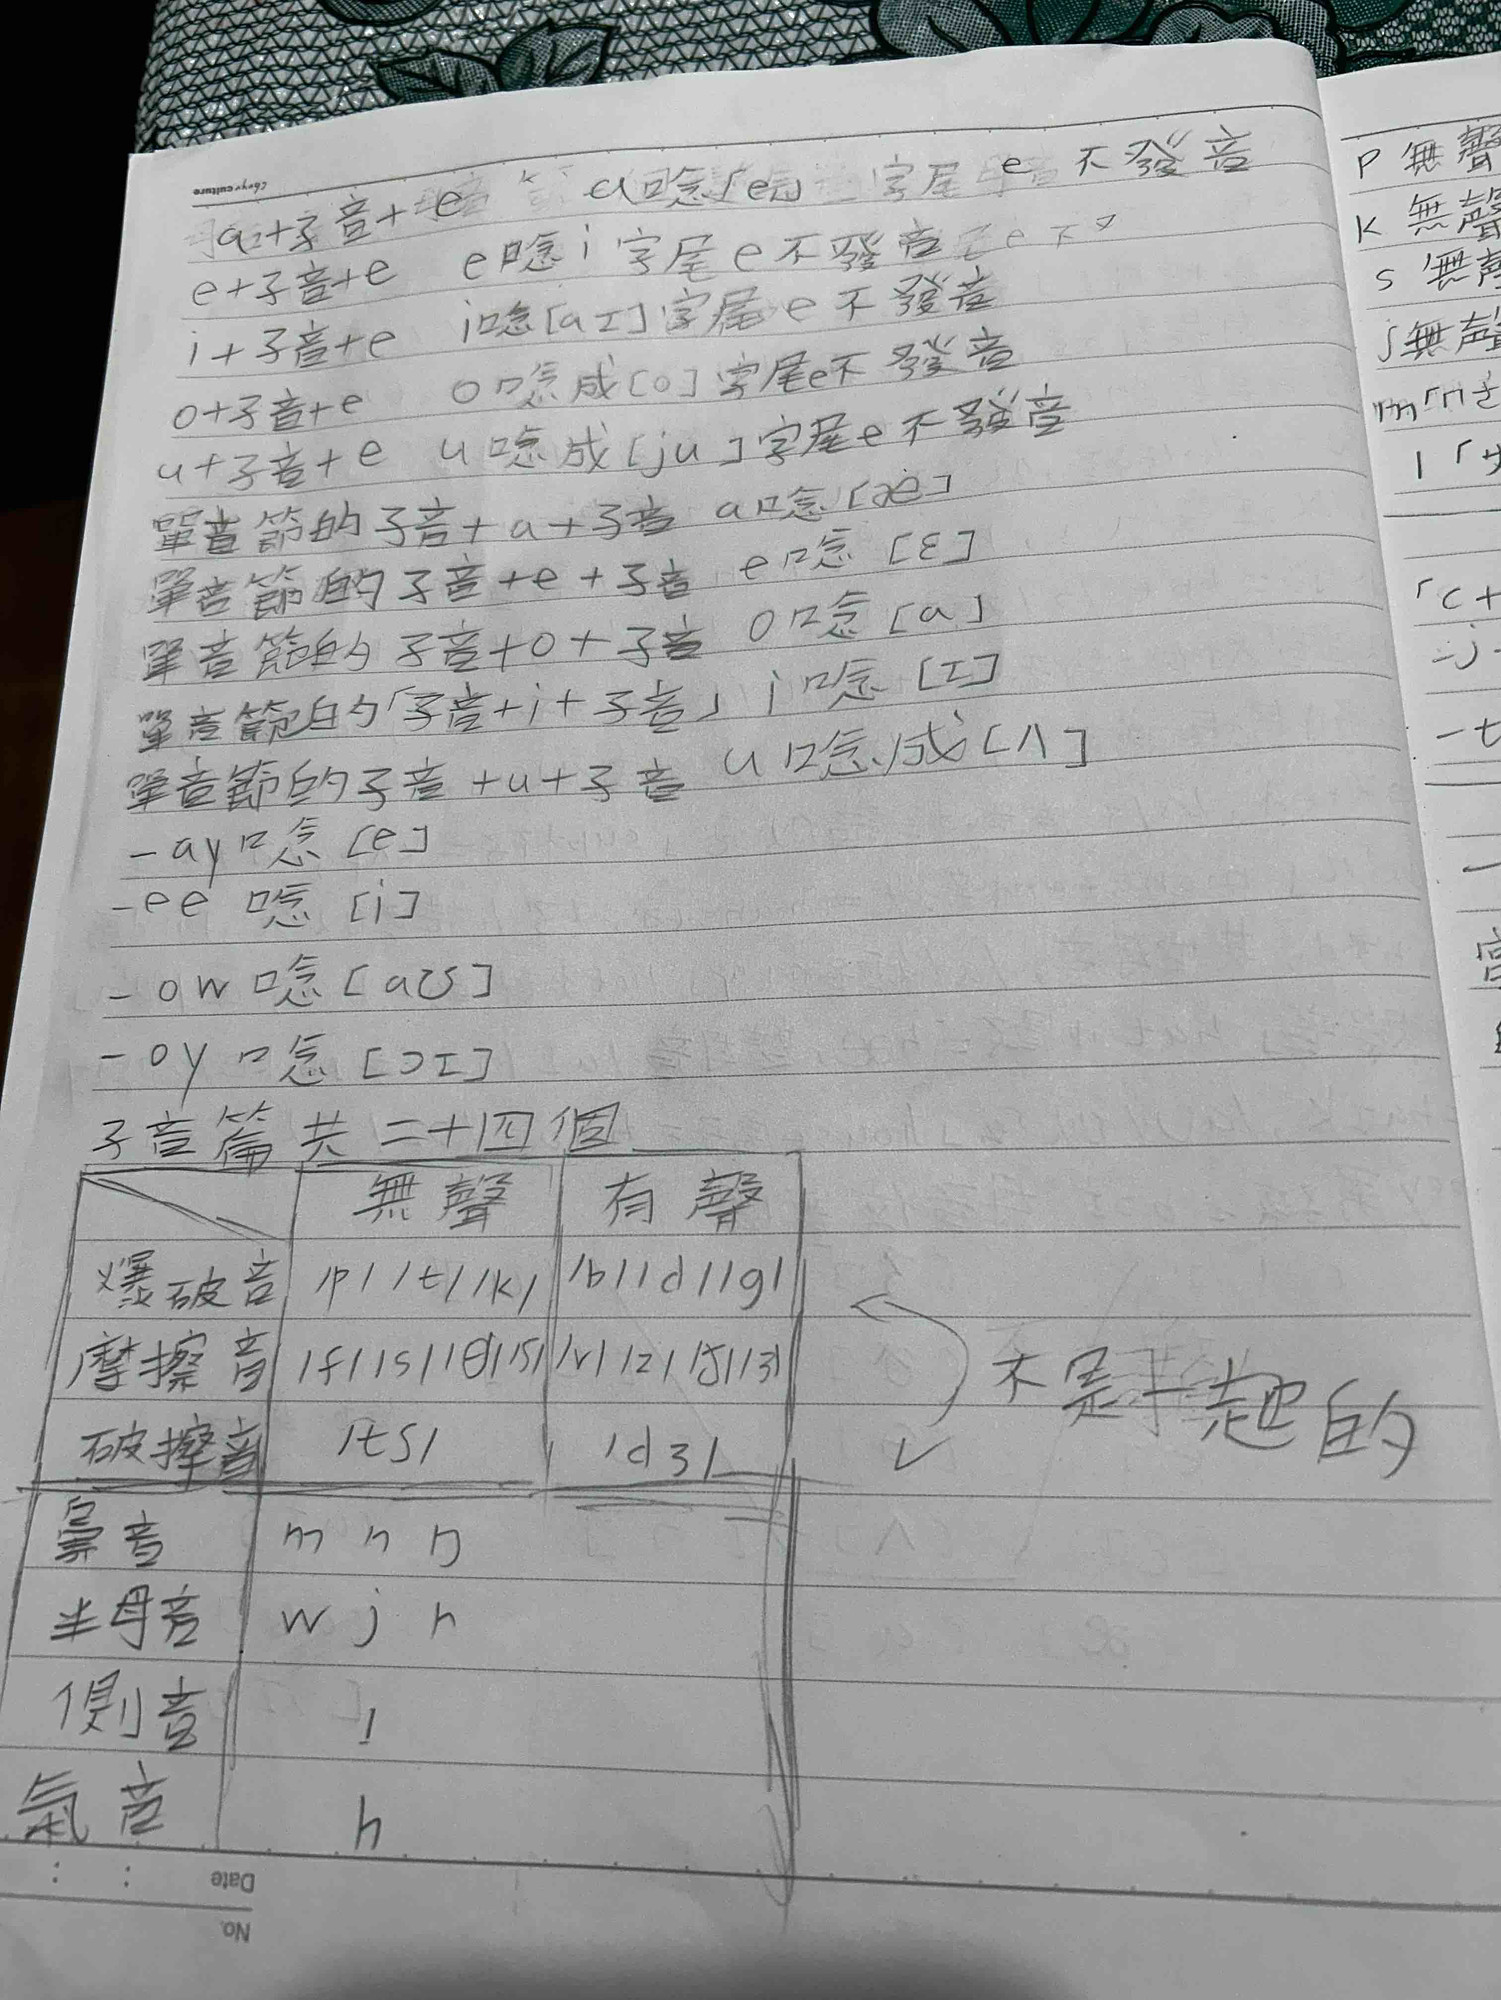 a+子音+e a唸「e」 字尾 e 不發音
e+子音+e e唸i字尾e不發音
i+子音+e i唸[aɪ]字尾e不發音
o+子音+e o唸成[o]字尾e不發音
u+子音+e u唸成[ju]字尾e不發音
單音節的子音+a+子音 a唸[æ]
單音節的子音+e+子音 e唸[ɛ]
單音節的子音+o+子音 o唸[a]
單音節的「子音+i+子音」 i唸[ɪ]
單音節的子音+u+子音 u唸成[ʌ]
-ay唸[e]
-ee 唸[i]
-ow唸[aʊ]
-oy唸[ɔɪ]
子音篇共二十四個
無聲 有聲
爆破音 /p/ /t/ /k/ /b/ /d/ /g/
摩擦音 /f/ /s/ /θ/ /ʃ/ /v/ /z/ /ð/ /ʒ/
破擦音 /tʃ/ /dʒ/
不是一起的
鼻音 m n ŋ
半母音 w j r
側音 l
氣音 h
Date : :
No.
P 無聲
K 無聲
S 無聲
ʃ 無聲